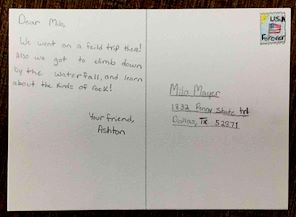 Dear Mila
We went on a feild trip there!
Also we got to climb down
by the waterfall, and learn
about the kinds of rock!
Your friend,
Ashton
USA
Forever
Mila Mayer
1832 Penny State
Dallas, TX 52971